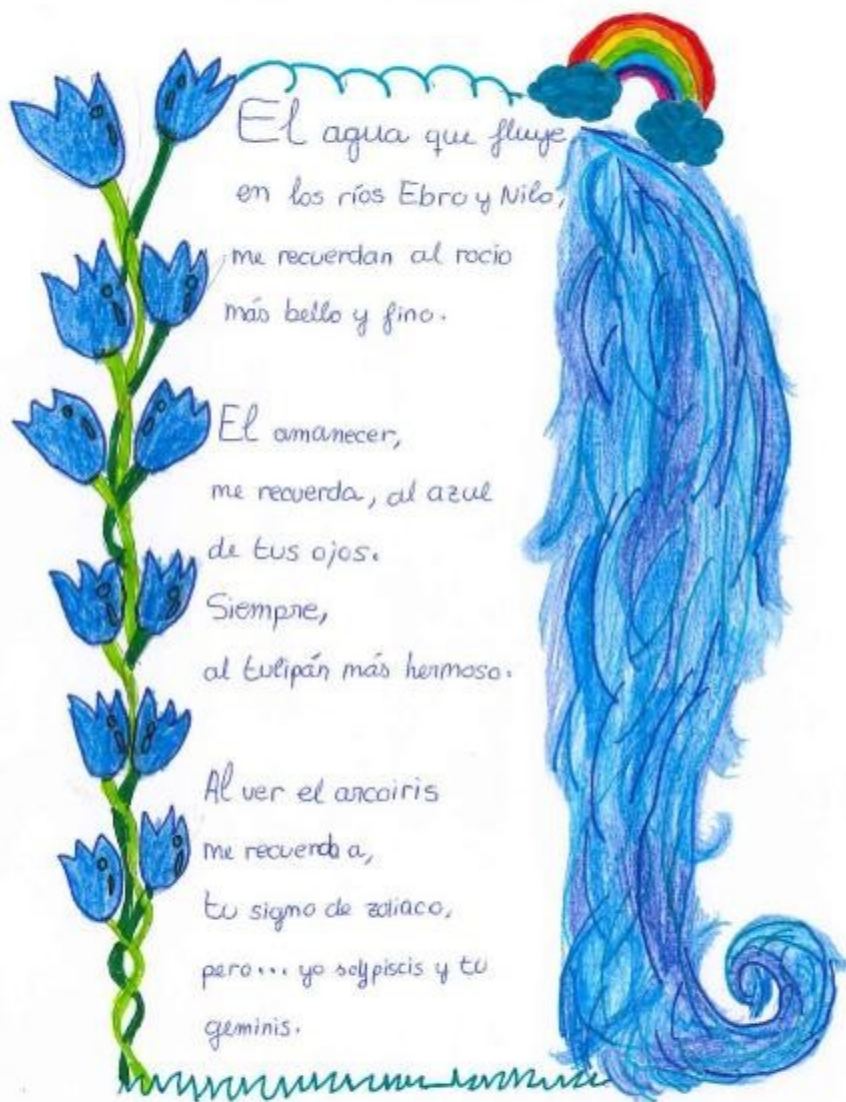 El agua que fluye
en los ríos Ebro y Nilo,
me recuerdan al rocio
más bello y fino.
El amanecer,
me recuerda, al azul
de tus ojos.
Siempre,
al tulipán más hermoso.
Al ver el arcoiris
me recuerda a,
tu signo de zoliaco,
pero... yo soy piscis y tu
geminis.